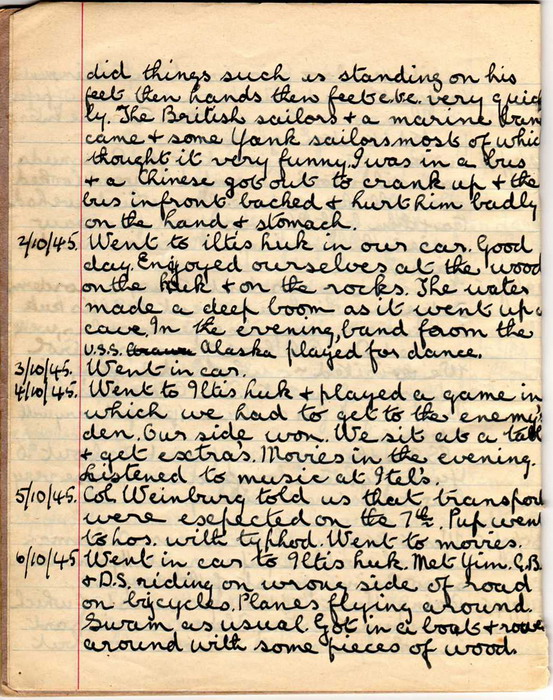 did things such as standing on his
feet then hands then feet e.t.c. very quick
ly. The British sailors & a marine ban
came & some Yank sailors most of whic
thought it very funny. I was in a bus
& a Chinese got out to crank up & the
bus infront backed & hurt him badly
on the hand & stomach.
2/10/45. Went to iltis huk in our car. Good
day. Enjoyed ourselves at the wood
on the huk & on the rocks. The water
made a deep boom as it went up a
cave. In the evening, band from the
U.S.S. Alaska played for dance.
3/10/45. Went in car.
4/10/45. Went to Iltis huk & played a game in
which we had to get to the enemy's
den. Our side won. We sit at a tabl
& get extras. Movies in the evening.
Listened to music at Itel's.
5/10/45. Col. Weinburg told us that transpor
were exepected on the 7th. Pup wen
to hos. with typhod. Went to movies.
6/10/45 Went in car to Iltis huk. Met Yim. G.B.
& D.S. riding on wrong side of road
on bicycles. Planes flying around.
Swam as usual. Got in a boat & rowe
around with some pieces of wood.